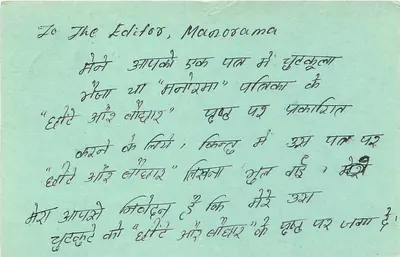 To The Editor, Manorama
मेने आपको एक पत्र में चुटकुला
भेजा था "मनोरमा" पत्रिका के
"छींटे और बौछार" पृष्ठ पर प्रकाशित
करने के लिये, किन्तु में उस पत्र पर
"छींटे और बौछार" लिखना भूल गई।
मेरा आपसे निवेदन है कि मेरे उस
चुटकुटे को "छींटे और बौछार" के पृष्ठ पर जगा दें